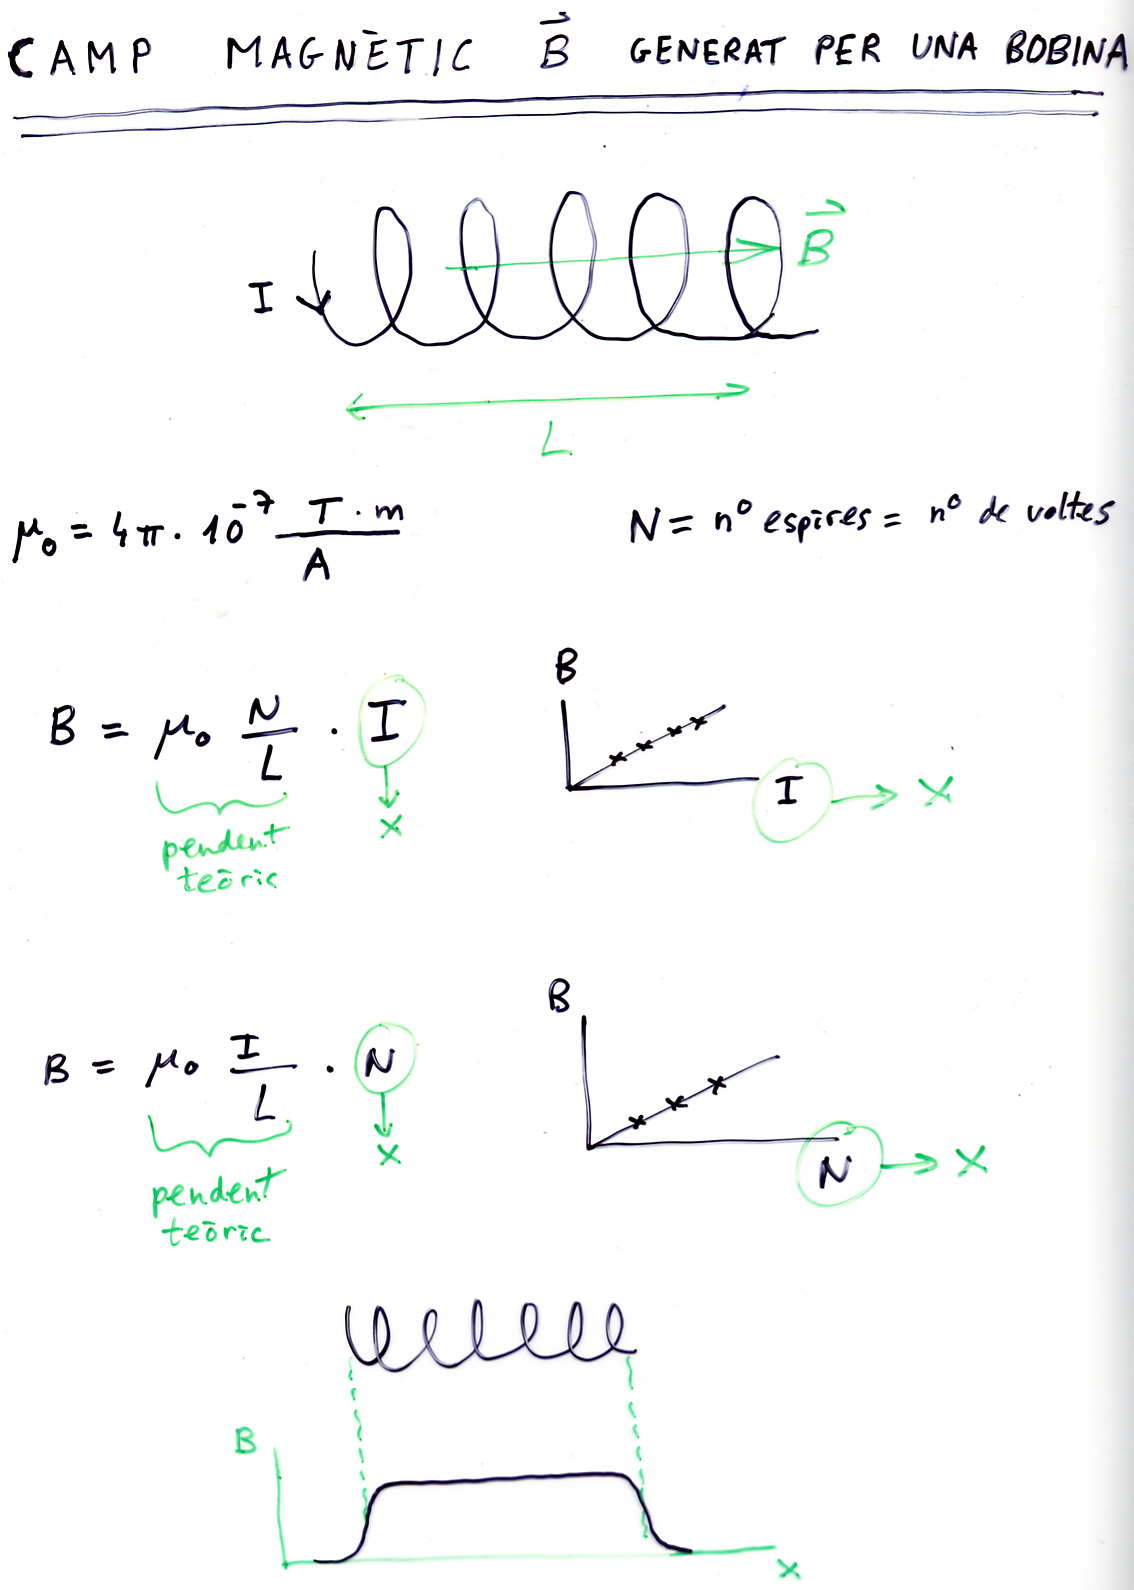 CAMP MAGNÈTIC B⃗ GENERAT PER UNA BOBINA
B⃗
I
L
μ₀ = 4π · 10⁻⁷ T · m / A
N = nº espires = nº de voltes
B = μ₀ N/L · I
pendent
teòric
x
B
I → X
B = μ₀ I/L · N
pendent
teòric
x
B
N → X
B
x